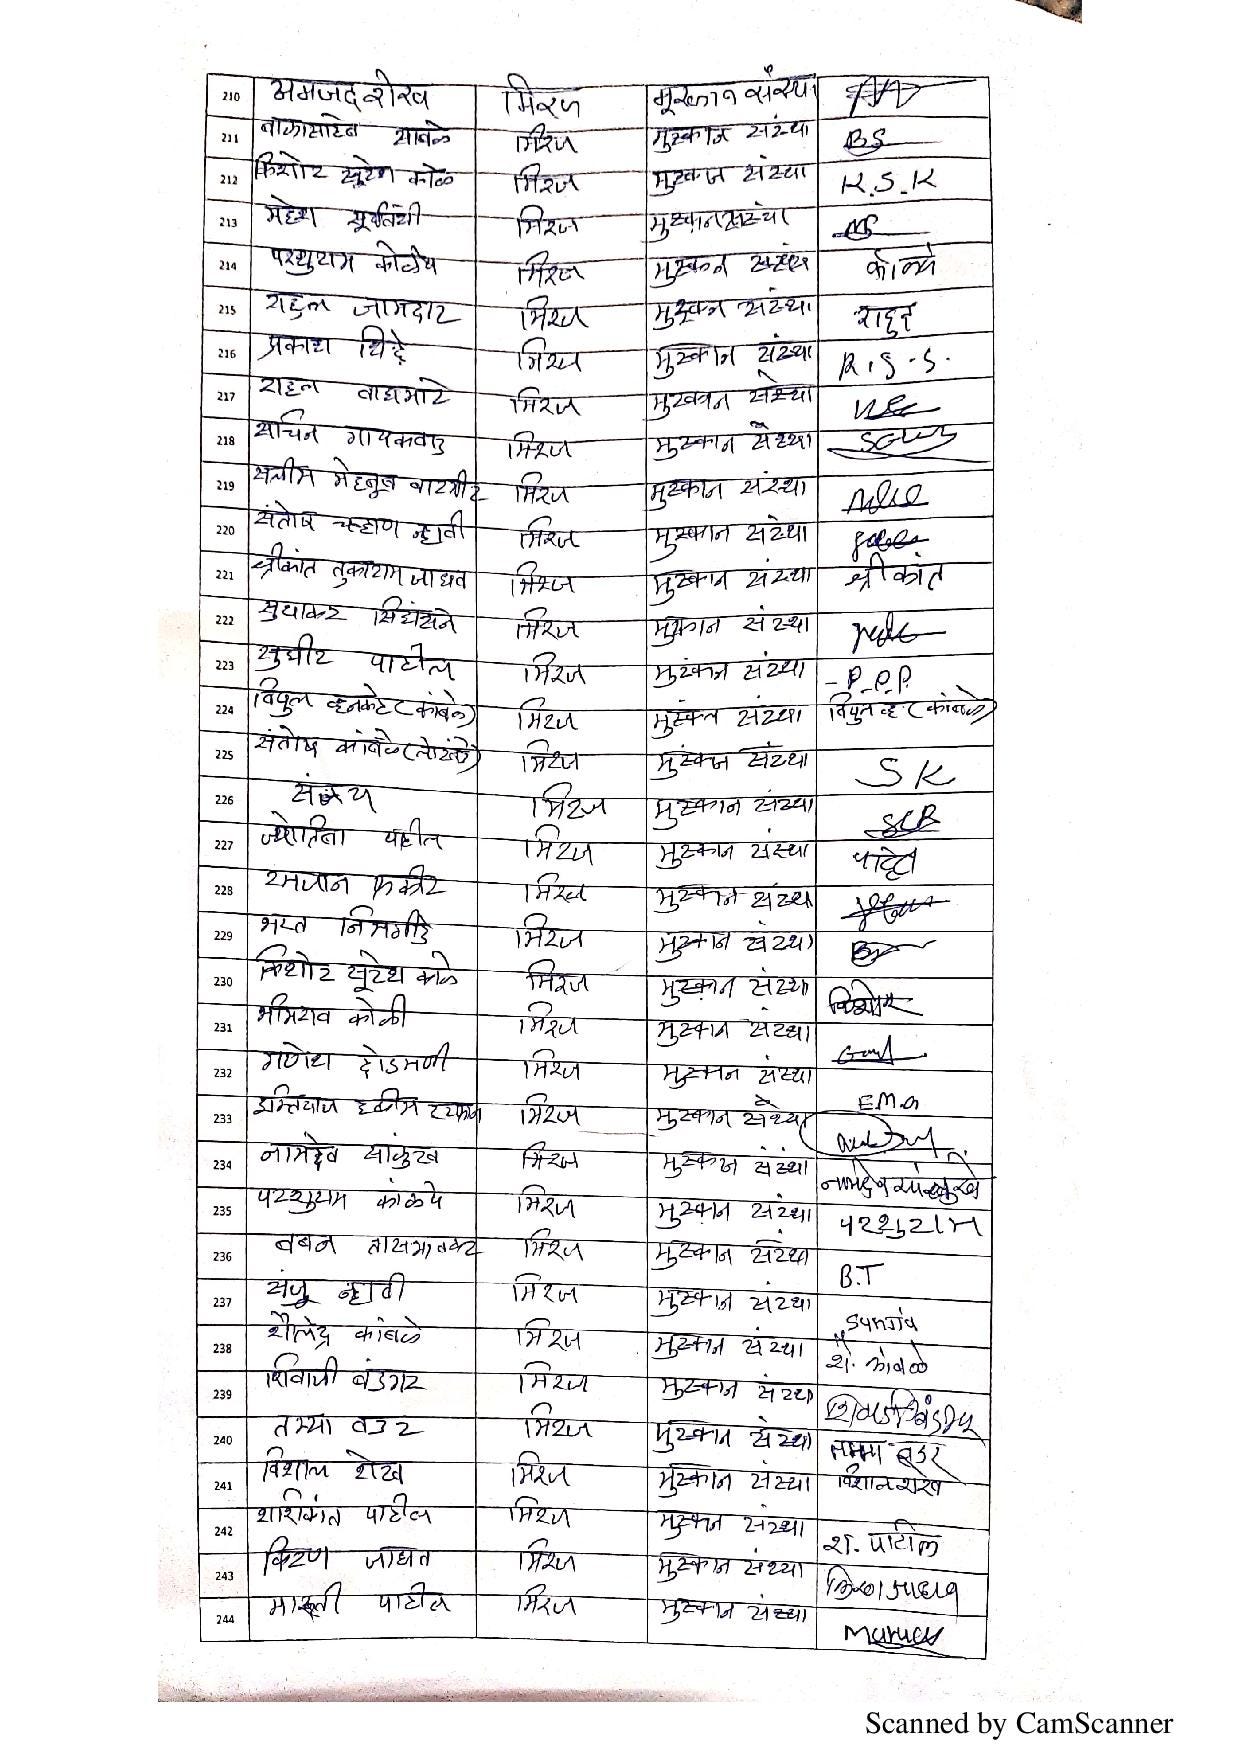 210 अमजद शेख मिरज मुस्कान संस्था
211 बाळासाहेब साबळे मिरज मुस्कान संस्था BS
212 किशोर सुरेश काळे मिरज मुस्कान संस्था K.S.K
213 महेश सूर्यवंशी मिरज मुस्कान संस्था MS
214 परशुराम कोळेप मिरज मुस्कान संस्था
215 राहुल जामदार मिरज मुस्कान संस्था राहुल
216 प्रकाश शिंदे मिरज मुस्कान संस्था R.S.S.
217 राहुल वाघमारे मिरज मुस्कान संस्था
218 सचिन गायकवाड मिरज मुस्कान संस्था
219 सलीम मेहबुब मिरज मुस्कान संस्था
220 संतोष चव्हाण न्हावी मिरज मुस्कान संस्था
221 श्रीकांत तुकाराम जाधव मिरज मुस्कान संस्था श्रीकांत
222 सुधाकर मिरज मुस्कान संस्था
223 सुधीर पाटील मिरज मुस्कान संस्था P.P.P.
224 विपुल व्हनकटे (कांबळे) मिरज मुस्कान संस्था विपुल व्ह (कांबळे)
225 संतोष कांबळे (लोखंडे) मिरज मुस्कान संस्था SK
226 संजय मिरज मुस्कान संस्था SCB
227 ज्योतिबा पाटील मिरज मुस्कान संस्था
228 रमजान फकीर मिरज मुस्कान संस्था
229 भरत निमगीडे मिरज मुस्कान संस्था
230 किशोर सुरेश काळे मिरज मुस्कान संस्था किशोर
231 भीमराव कोळी मिरज मुस्कान संस्था
232 गणेश दोडमणी मिरज मुस्कान संस्था
233 इम्तियाज हकीम मिरज मुस्कान संस्था E.M.
234 नामदेव सांळुखे मिरज मुस्कान संस्था नामदेव सांळुखे
235 परशुराम काळपे मिरज मुस्कान संस्था परशुराम
236 बबन तासगावकर मिरज मुस्कान संस्था B.T
237 संजु न्हावी मिरज मुस्कान संस्था Sunjiv
238 शैलेंद्र कांबळे मिरज मुस्कान संस्था शै. कांबळे
239 शिवाजी बंडगर मिरज मुस्कान संस्था
240 तम्मा वडर मिरज मुस्कान संस्था तम्मा वडर
241 विशाल शेख मिरज मुस्कान संस्था विशाल शेख
242 शशिकांत पाटील मिरज मुस्कान संस्था श. पाटील
243 किरण जाधव मिरज मुस्कान संस्था किरण जाधव
244 मारुती पाटील मिरज मुस्कान संस्था
Scanned by CamScanner